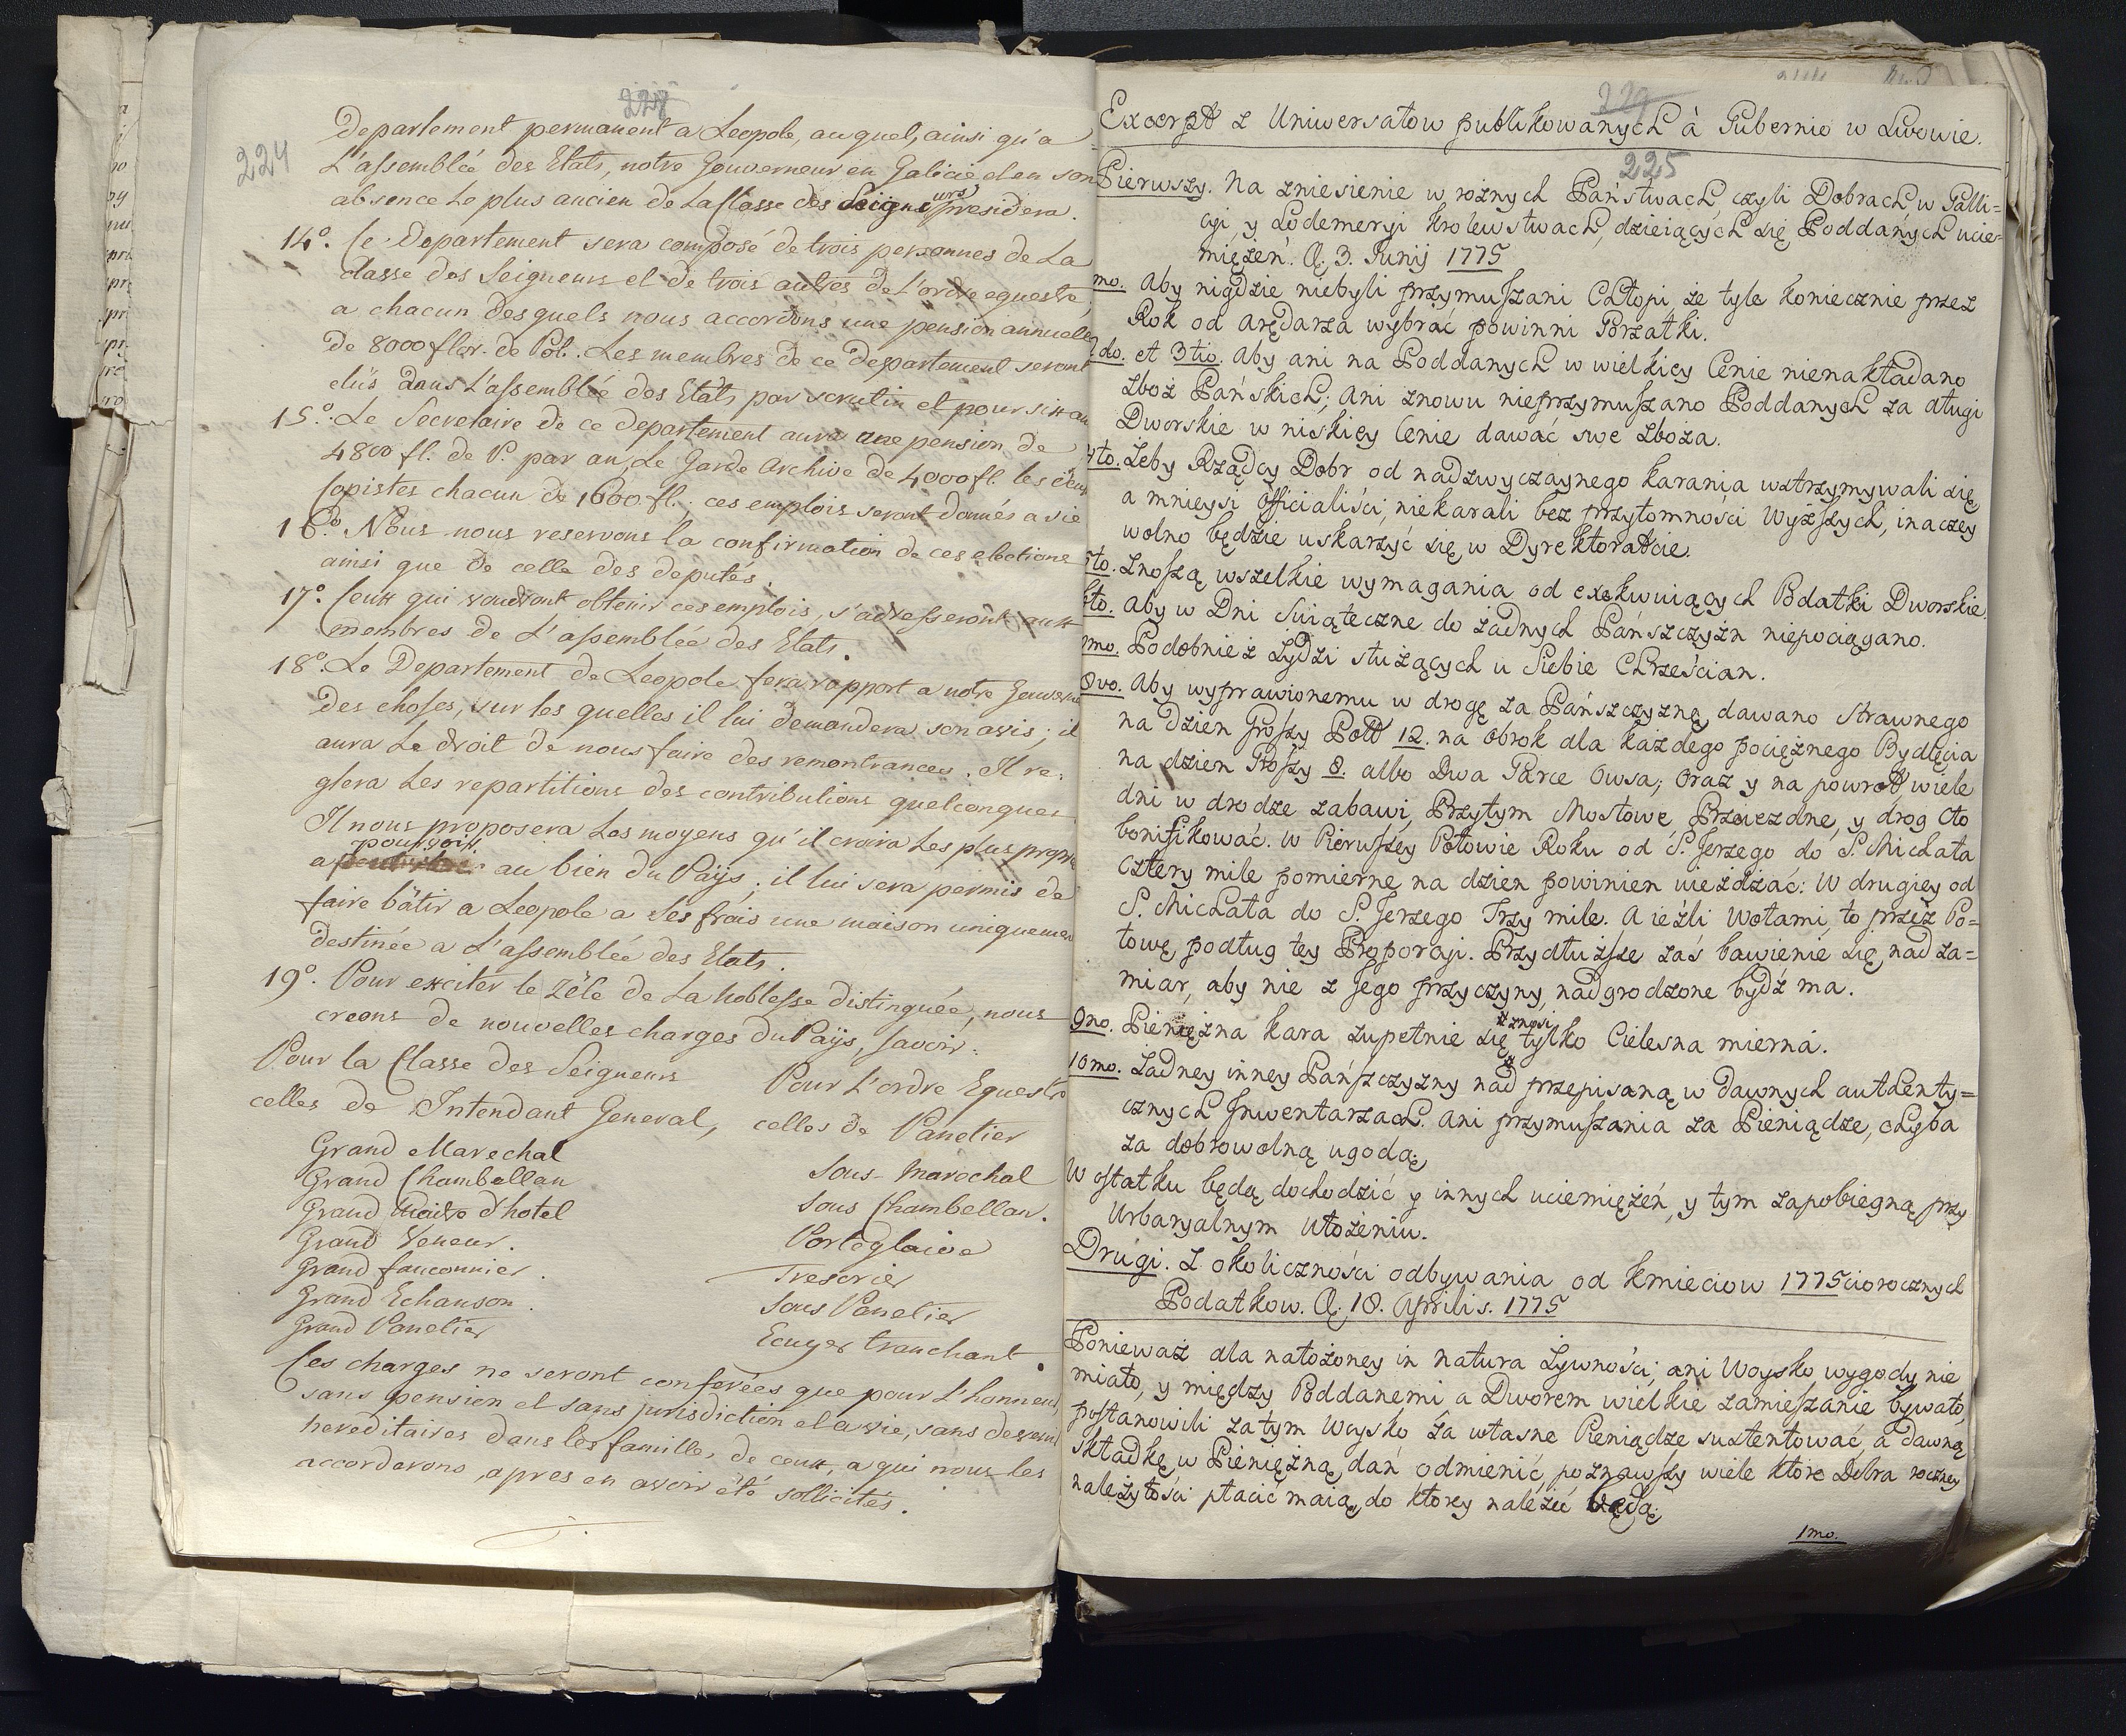 228
224
departement permanent a Leopole, auquel, ainsi qu'a
L'assemblée des Etats, notre Gouverneur en Galicie et en son
absence le plus ancien de la Classe des Seigneurs presidera.
14°. Ce departement sera composé de trois personnes de La
classe des Seigneurs et de trois autres de L'ordre equestre,
a chacun desquels nous accordons une pension annuelle
de 8000 flor. de Pol. Les membres de ce departement seront
elüs dans L'assemblée des Etats par scrutin et pour six an
15°. Le Secretaire de ce departement aura une pension de
4800 fl. de P. par an, Le Garde Archive de 4000 fl. les deux
Copistes chacun de 1600. fl.; ces emplois seront donnés a vie
16°. Nous nous reservons la confirmation de ces elections
ainsi que de celle des deputés.
17°. Ceux qui voudront obtenir ces emplois, s'adresseront aux
membres de L'assemblée des Etats.
18°. Le Departement de Leopole fera rapport a notre Gouverne
des choses, sur les quelles il lui demandera son avis; il
aura Le droit de nous faire des remontrances. Il re-
glera Les repartitions des contributions quelconques.
Il nous proposera Les moyens qu'il croira Les plus propre
pourvoir
a au bien du Païs; il lui sera permis de
faire bâtir a Leopole a ses frais une maison uniquemen
destinée a L'assemblée des Etats.
19°. Pour exciter le Zêle de La Noblesse distinguée, nous
creons de nouvelles charges du Païs, savoir:
Pour la Classe des Seigneurs Pour L'ordre Equestre
celles de Intendant General, celles de Panetier
Grand Marechal Sous-Marechal
Grand Chambellan Sous Chambellan.
Grand Maitre d'hotel Porteglaive
Grand Veneur. Tresorier
Grand fauconnier. Sous Panetier
Grand Echanson. Ecuyer tranchant.
Grand Panetier
Ces charges ne seront conferées que pour L'honneur
sans pension et sans jurisdiction et a vie, sans devenir
hereditaires dans les familles de ceux, a qui nous les
accorderons, apres en avoir été sollicités.
229
Excerpt z Uniwersałow publikowanych à Gubernio w Lwowie.
225
Pierwszy. Na zniesienie w rożnych Państwach, czyli Dobrach w Galli=
cyi, y Lodemeryi Krolewstwach, dzieiących się Poddanych ucie=
miężeń. D. 3. Junij 1775
mo. Aby nigdzie niebyli przymuszani Chłopi, że tyle koniecznie przez
Rok od Arędarza wybrać powinni Gorzałki.
2do. et 3tio. Aby ani na Poddanych w wielkiey Cenie nienakładano
zboż Pańskich; Ani znowu nieprzymuszano Poddanych za długi
Dworskie w niskiey Cenie dawać swe zboża.
4to. Żeby Rządcy Dobr od nadzwyczaynego karania wstrzymywali się,
a mnieysi Officialiści, niekarali bez przytomności Wyższych, inaczey
wolno będzie uskarżyć się w Dyrektoracie.
5to. Znoszą wszelkie wymagania od exekwuiących Podatki Dworskie.
6to. Aby w Dni Swiąteczne do żadnych Pańszczyzn niepociągano.
7mo. Podobnież Żydzi służących u Siebie Chrześcian.
8vo. Aby wyprawionemu w drogę za Pańszczyznę dawano Strawnego
na dzien Groszy Polł 12. na Obrok dla każdego pociężnego Bydlęcia
na dzien Groszy 8. albo Dwa Garce Owsa; Oraz y na powrot, wiele
dni w drodze zabawi, Przytym Mostowe, Przewezdne, y drog Cło
bonifikować. W Pierwszey Połowie Roku od S. Jerzego do S. Michała
cztery mile pomierne na dzien powinien uieżdżać: W drugiey od
S. Michała do S. Jerzego Trzy mile. A ieżli Wołami, to przez Po=
łowę, podług tey Proporcyi. Przydłuższe zaś bawienie się, nad za=
miar, aby nie z Jego przyczyny, nadgrodzone bydź ma.
9no. Pieniężna kara zupełnie się # tylko Cielesna mierna.
# znosi
10mo. Żadney inney Pańszczyzny nad przepisaną w dawnych authenty=
cznych Inwentarzach. Ani przymuszania za Pieniądze, chyba
za dobrowolną ugodą.
W ostatku będą dochodzić y innych uciemiężeń, y tym zapobiegną przy
Urbaryalnym Ułożeniu.
Drugi. Z okoliczności odbywania od kmieciow 1775cioroczných
Podatkow. D. 18. Aprilis. 1775
Ponieważ dla nałożoney in natura Żywności, ani Woysko wygody nie
miało, y między Poddanemi a Dworem wielkie zamieszanie bywało,
postanowili zatym Woysko za własne Pieniądze sustentować, a dawną
składkę, w Pieniężną dań odmienić, poznawszy wiele ktore Dobra roczney
należytości płacić maią, do ktorey należeć będą.
1mo.